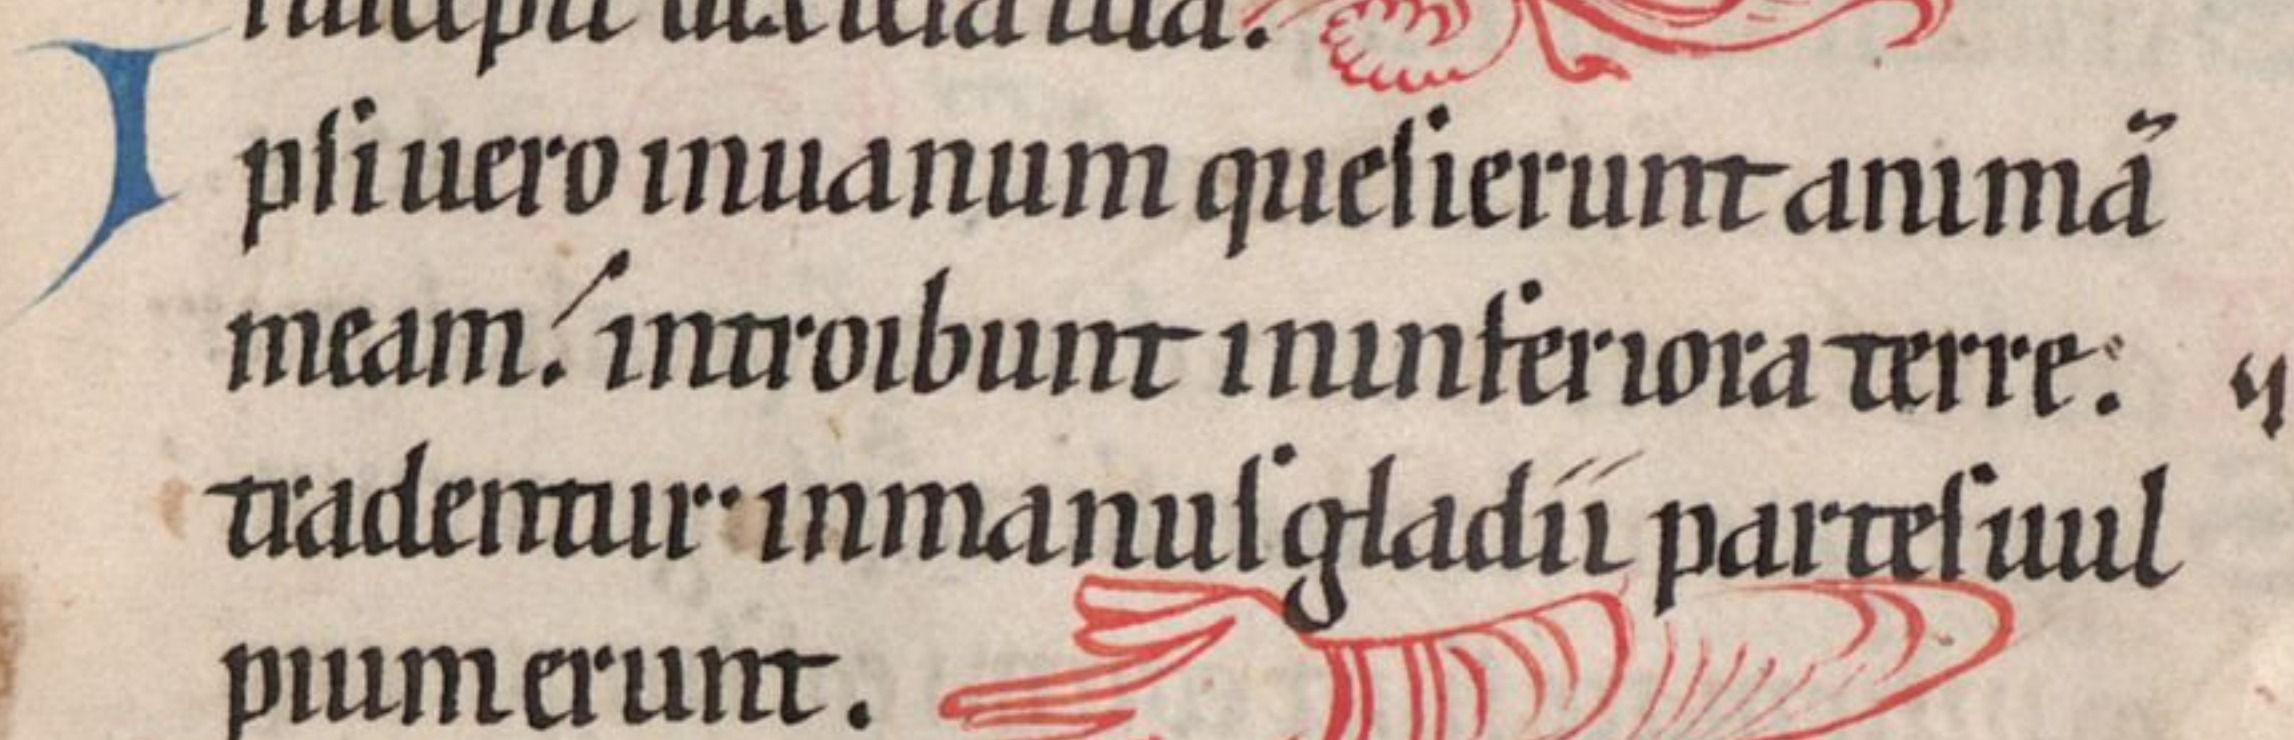 suscepit dextera tua.
Ipsi uero inuanum quesierunt animā
meam: introibunt ininferiora terre:
tradentur inmanus gladii partes uul
pium erunt.